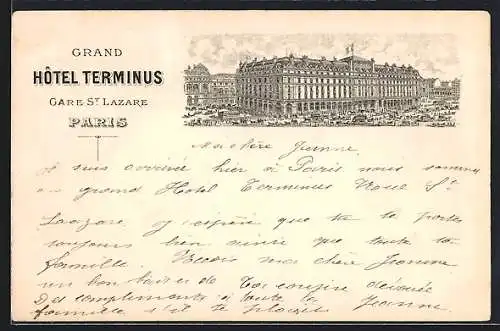 GRAND
HÔTEL TERMINUS
GARE ST LAZARE
PARIS
Ma chère Jeanne
Je suis arrivée hier à Paris nous sommes
au grand Hotel Terminus Rue St
Lazare j'espère que tu te portes
toujours bien ainsi que toute ta
famille. Recois ma chère Jeanne
un bon baiser de ta cousine dévouée
Des compliments à toute la
famille s'il te plait Jeanne